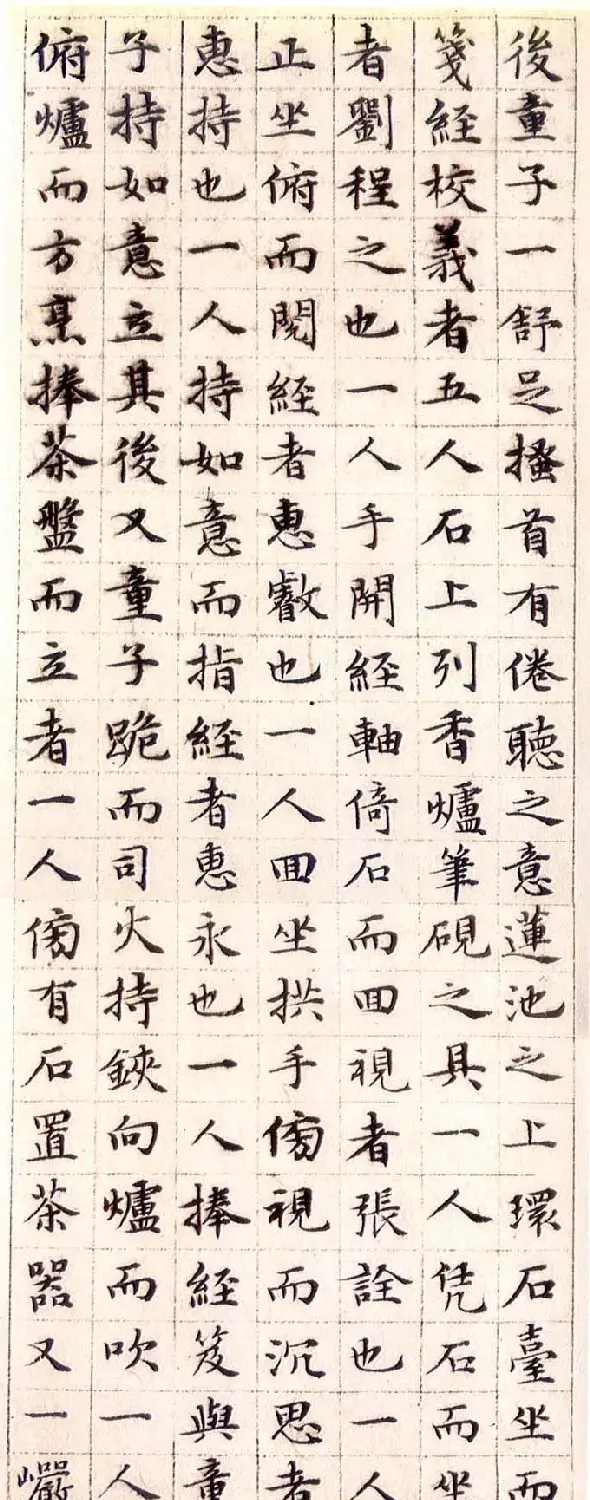 後童子一舒足搔首有倦聽之意蓮池之上環石臺坐而
箋經校義者五人石上列香爐筆硯之具一人凭石而坐
者劉程之也一人手開經軸倚石而回視者張詮也一人
正坐俯而閱經者惠叡也一人回坐拱手傍視而沉思者
惠持也一人持如意而指經者惠永也一人捧經笈與童
子持如意立其後又童子跪而司火持鋏向爐而吹一人
俯爐而方烹捧茶盤而立者一人傍有石置茶器又一巖